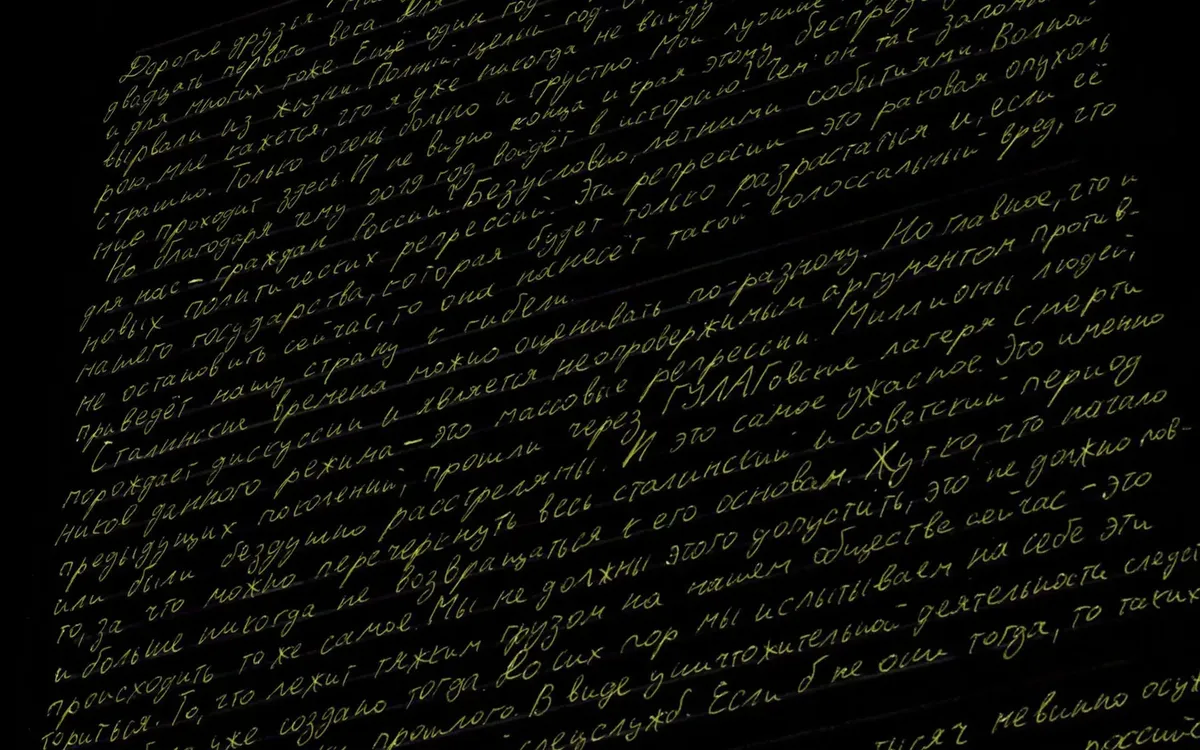 Дорогие друзья.
двадцать первого века. Для
и для многих тоже. Ещё один год
вырвали из жизни. Полный, целый год.
рою, мне кажется, что я уже никогда не выйду
страшно. Только очень больно и грустно. Мои лучшие
ние проходит здесь. И не видно конца и края этому беспреде
Но благодаря чему 2019 год войдёт в историю? Чем он так запомн
для нас – граждан России? Безусловно, летними событиями. Волной
новых политических репрессий. Эти репрессии – это раковая опухоль
нашего государства, которая будет только разрастаться и, если её
не остановить сейчас, то она нанесёт такой колоссальный вред, что
приведёт нашу страну к гибели.
Сталинские времена можно оценивать по-разному. Но главное, что и
порождает дискуссии и является неопровержимым аргументом против-
ников данного режима – это массовые репрессии. Миллионы людей,
предыдущих поколений, прошли через ГУЛАГовские лагеря смерти
или были бездушно расстреляны. И это самое ужасное. Это именно
то, за что можно перечеркнуть весь сталинский и советский период
и больше никогда не возвращаться к его основам. Жутко, что начало
происходить то же самое. Мы не должны этого допустить, это не должно пов-
ториться. То, что лежит тяжким грузом на нашем обществе сейчас – это
уже создано тогда. До сих пор мы испытываем на себе эти
прошлого. В виде уничтожительной деятельности следс
спецслужб. Если б не они тогда, то таких
тысяч невинно осуж
россий